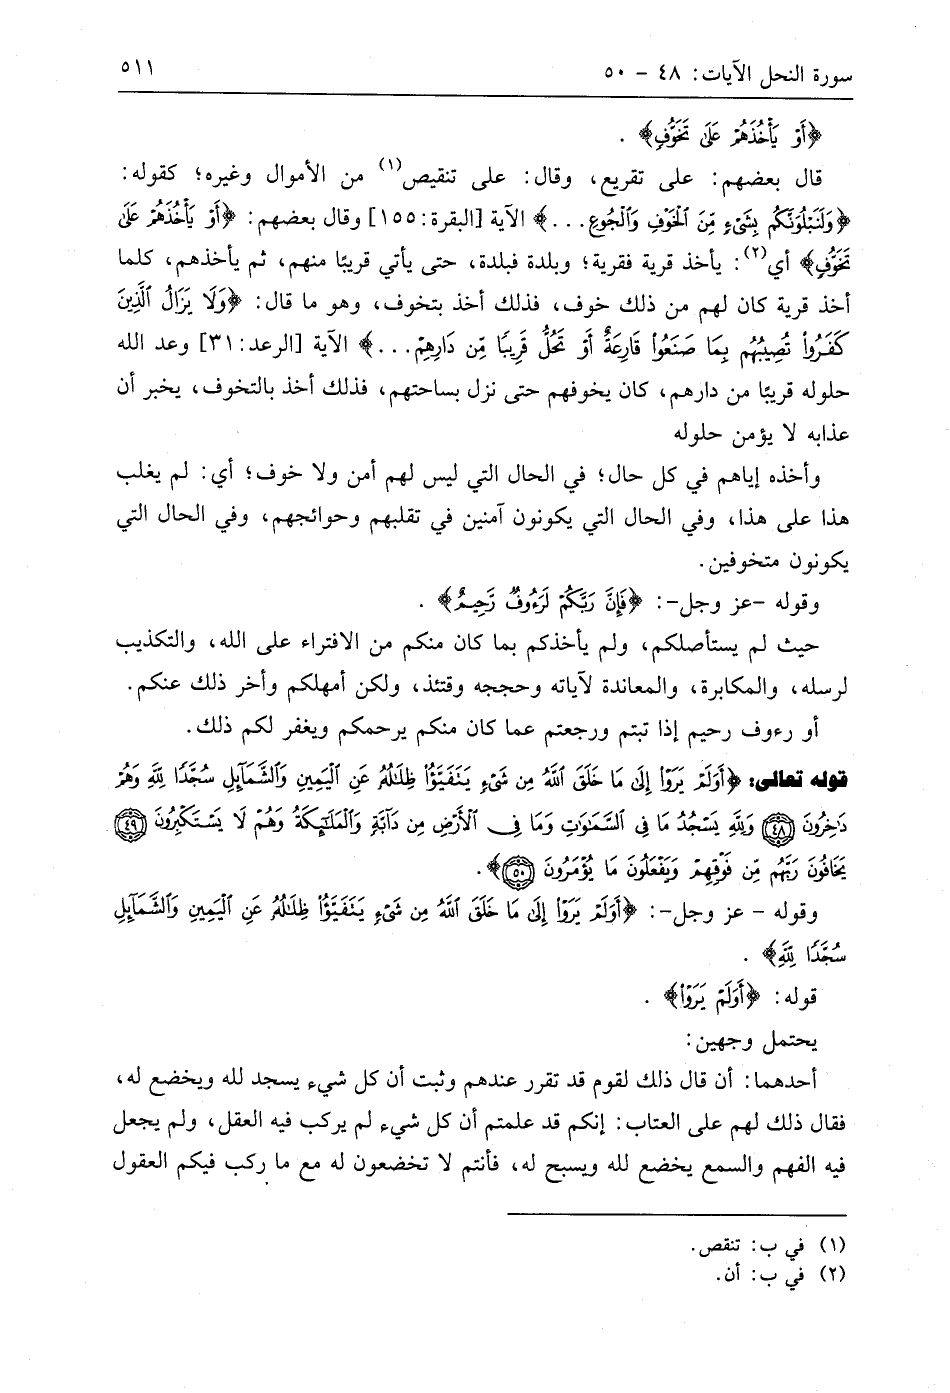 سورة النحل الآيات: ٤٨ - ٥٠
٥١١
﴿أَوْ يَأْخُذَهُمْ عَلَىٰ تَخَوُّفٍ﴾ .
قال بعضهم: على تقريع، وقال: على تنقيص(١) من الأموال وغيره؛ كقوله:
﴿وَلَنَبْلُوَنَّكُم بِشَىْءٍ مِّنَ ٱلْخَوْفِ وَٱلْجُوعِ...﴾ الآية [البقرة:١٥٥] وقال بعضهم: ﴿أَوْ يَأْخُذَهُمْ عَلَىٰ
تَخَوُّفٍ﴾ أي(٢): يأخذ قرية فقرية؛ وبلدة فبلدة، حتى يأتي قريبًا منهم، ثم يأخذهم، كلما
أخذ قرية كان لهم من ذلك خوف، فذلك أخذ بتخوف، وهو ما قال: ﴿وَلَا يَزَالُ ٱلَّذِينَ
كَفَرُوا۟ تُصِيبُهُم بِمَا صَنَعُوا۟ قَارِعَةٌ أَوْ تَحُلُّ قَرِيبًا مِّن دَارِهِمْ...﴾ الآية [الرعد:٣١] وعد الله
حلوله قريبًا من دارهم، كان يخوفهم حتى نزل بساحتهم، فذلك أخذ بالتخوف، يخبر أن
عذابه لا يؤمن حلوله
وأخذه إياهم في كل حال؛ في الحال التي ليس لهم أمن ولا خوف؛ أي: لم يغلب
هذا على هذا، وفي الحال التي يكونون آمنين في تقلبهم وحوائجهم، وفي الحال التي
يكونون متخوفين.
وقوله -عز وجل-: ﴿فَإِنَّ رَبَّكُمْ لَرَءُوفٌ رَّحِيمٌ﴾ .
حيث لم يستأصلكم، ولم يأخذكم بما كان منكم من الافتراء على الله، والتكذيب
لرسله، والمكابرة، والمعاندة لآياته وحججه وقتئذ، ولكن أمهلكم وأخر ذلك عنكم.
أو رءوف رحيم إذا تبتم ورجعتم عما كان منكم يرحمكم ويغفر لكم ذلك.
قوله تعالى: ﴿أَوَلَمْ يَرَوْا۟ إِلَىٰ مَا خَلَقَ ٱللَّهُ مِن شَىْءٍ يَتَفَيَّؤُا۟ ظِلَـٰلُهُۥ عَنِ ٱلْيَمِينِ وَٱلشَّمَآئِلِ سُجَّدًا لِّلَّهِ وَهُمْ
دَٰخِرُونَ ٤٨ وَلِلَّهِ يَسْجُدُ مَا فِى ٱلسَّمَـٰوَٰتِ وَمَا فِى ٱلْأَرْضِ مِن دَآبَّةٍ وَٱلْمَلَـٰٓئِكَةُ وَهُمْ لَا يَسْتَكْبِرُونَ ٤٩
يَخَافُونَ رَبَّهُم مِّن فَوْقِهِمْ وَيَفْعَلُونَ مَا يُؤْمَرُونَ ٥٠﴾.
وقوله - عز وجل-: ﴿أَوَلَمْ يَرَوْا۟ إِلَىٰ مَا خَلَقَ ٱللَّهُ مِن شَىْءٍ يَتَفَيَّؤُا۟ ظِلَـٰلُهُۥ عَنِ ٱلْيَمِينِ وَٱلشَّمَآئِلِ
سُجَّدًا لِّلَّهِ﴾ .
قوله: ﴿أَوَلَمْ يَرَوْا۟﴾ .
يحتمل وجهين:
أحدهما: أن قال ذلك لقوم قد تقرر عندهم وثبت أن كل شيء يسجد لله ويخضع له،
فقال ذلك لهم على العتاب: إنكم قد علمتم أن كل شيء لم يركب فيه العقل، ولم يجعل
فيه الفهم والسمع يخضع لله ويسبح له، فأنتم لا تخضعون له مع ما ركب فيكم العقول
(١) في ب: تنقص.
(٢) في ب: أن.